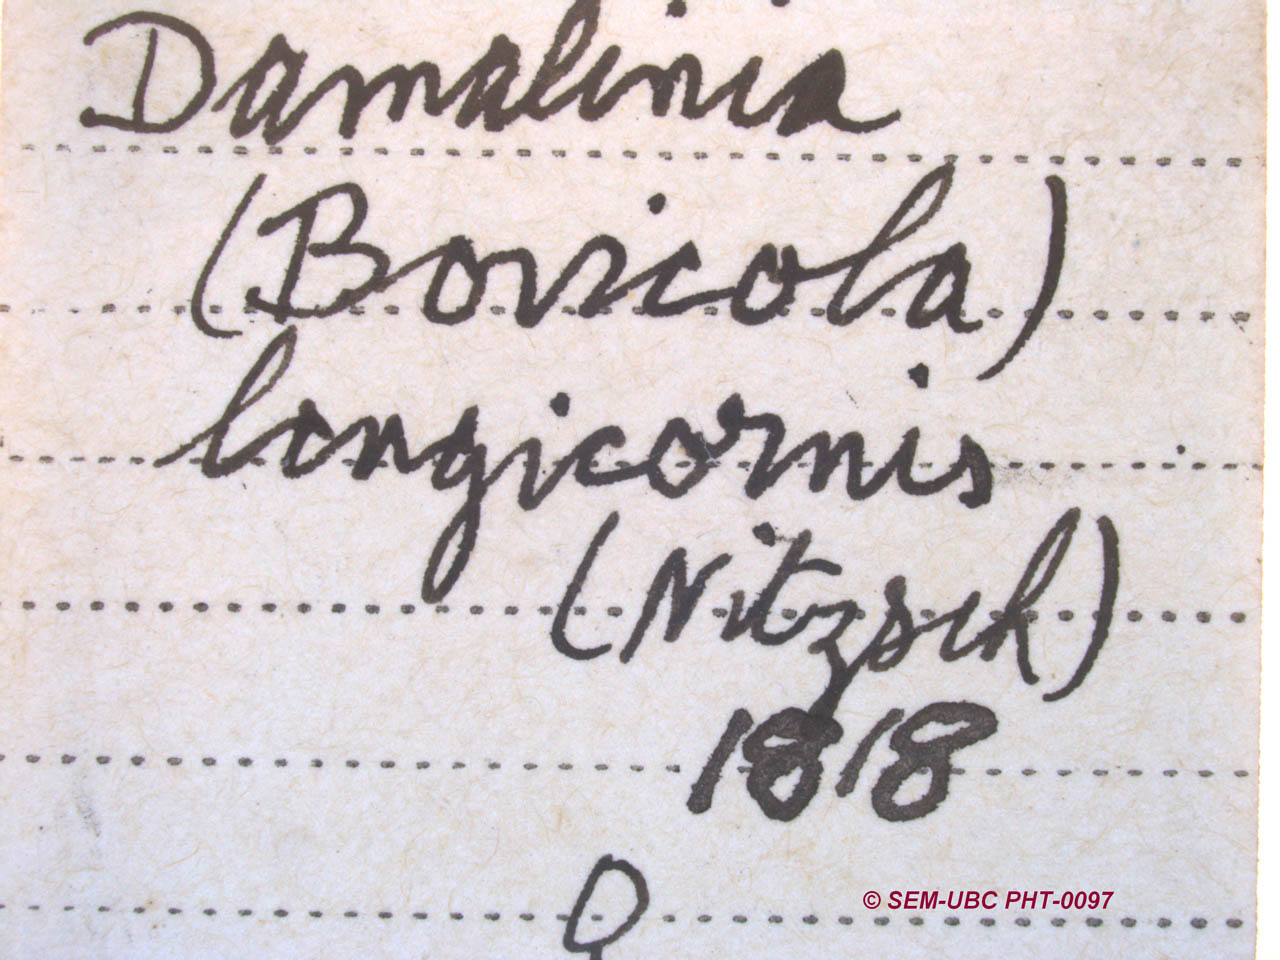 Damalinia
(Bovicola)
longicornis
(Nitzsch)
1818
♀
© SEM-UBC PHT-0097